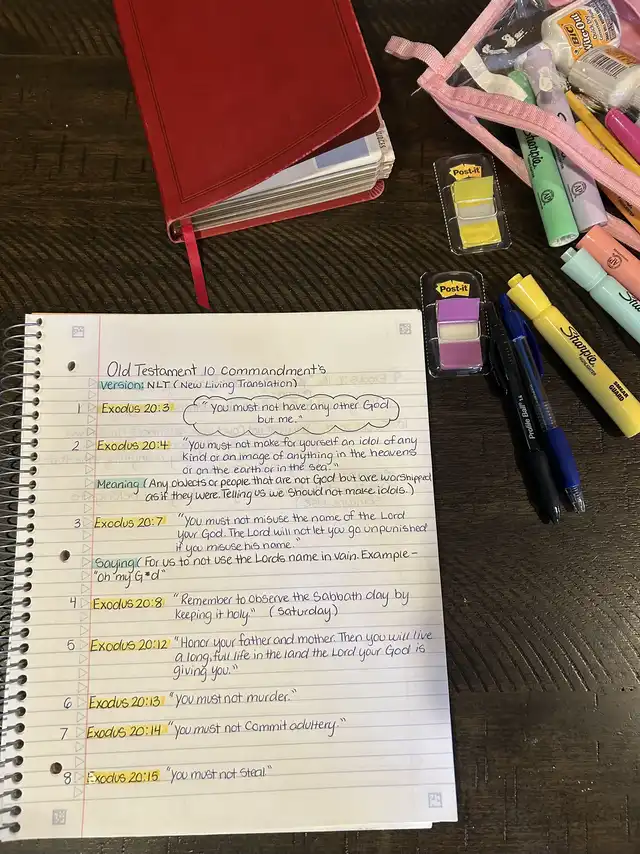 BIC
Wite-Out
Post-it
Sharpie
Post-it
Sharpie
Profile Ball 1.4
Old Testament 10 Commandment's
Version: NLT (New Living Translation)
1 Exodus 20:3 "You must not have any other God
but me."
2 Exodus 20:4 "You must not make for yourself an idol of any
Kind or an image of anything in the heavens
or on the earth or in the sea."
Meaning (Any objects or people that are not God but are worshipped
as if they were. Telling us we should not make idols.)
3 Exodus 20:7 "You must not misuse the name of the Lord
your God. The Lord will not let you go unpunished
if you misuse his name."
Saying (For us to not use the Lords name in vain. Example -
"oh my G*d"
4 Exodus 20:8 "Remember to observe the Sabbath day by
keeping it holy." (Saturday)
5 Exodus 20:12 "Honor your father and mother. Then you will live
a long, full life in the land the Lord your God is
giving you."
6 Exodus 20:13 "You must not murder."
7 Exodus 20:14 "You must not Commit adultery."
8 Exodus 20:15 "You must not steal."